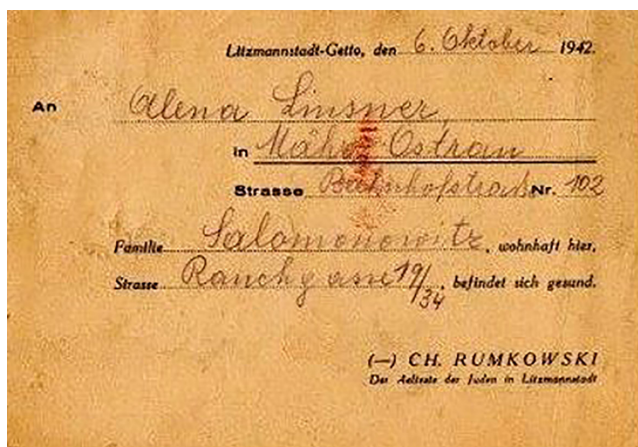 Litzmannstadt-Getto, den 6. Oktober 1942.
An Alena Linsner,
in Mähr. Ostrau
Strasse Bahnhofstrasse Nr. 102
Familie Salomonowitz, wohnhaft hier,
Strasse Rauchgasse 19/34, befindet sich gesund.
(—) CH. RUMKOWSKI
Der Aelteste der Juden in Litzmannstadt